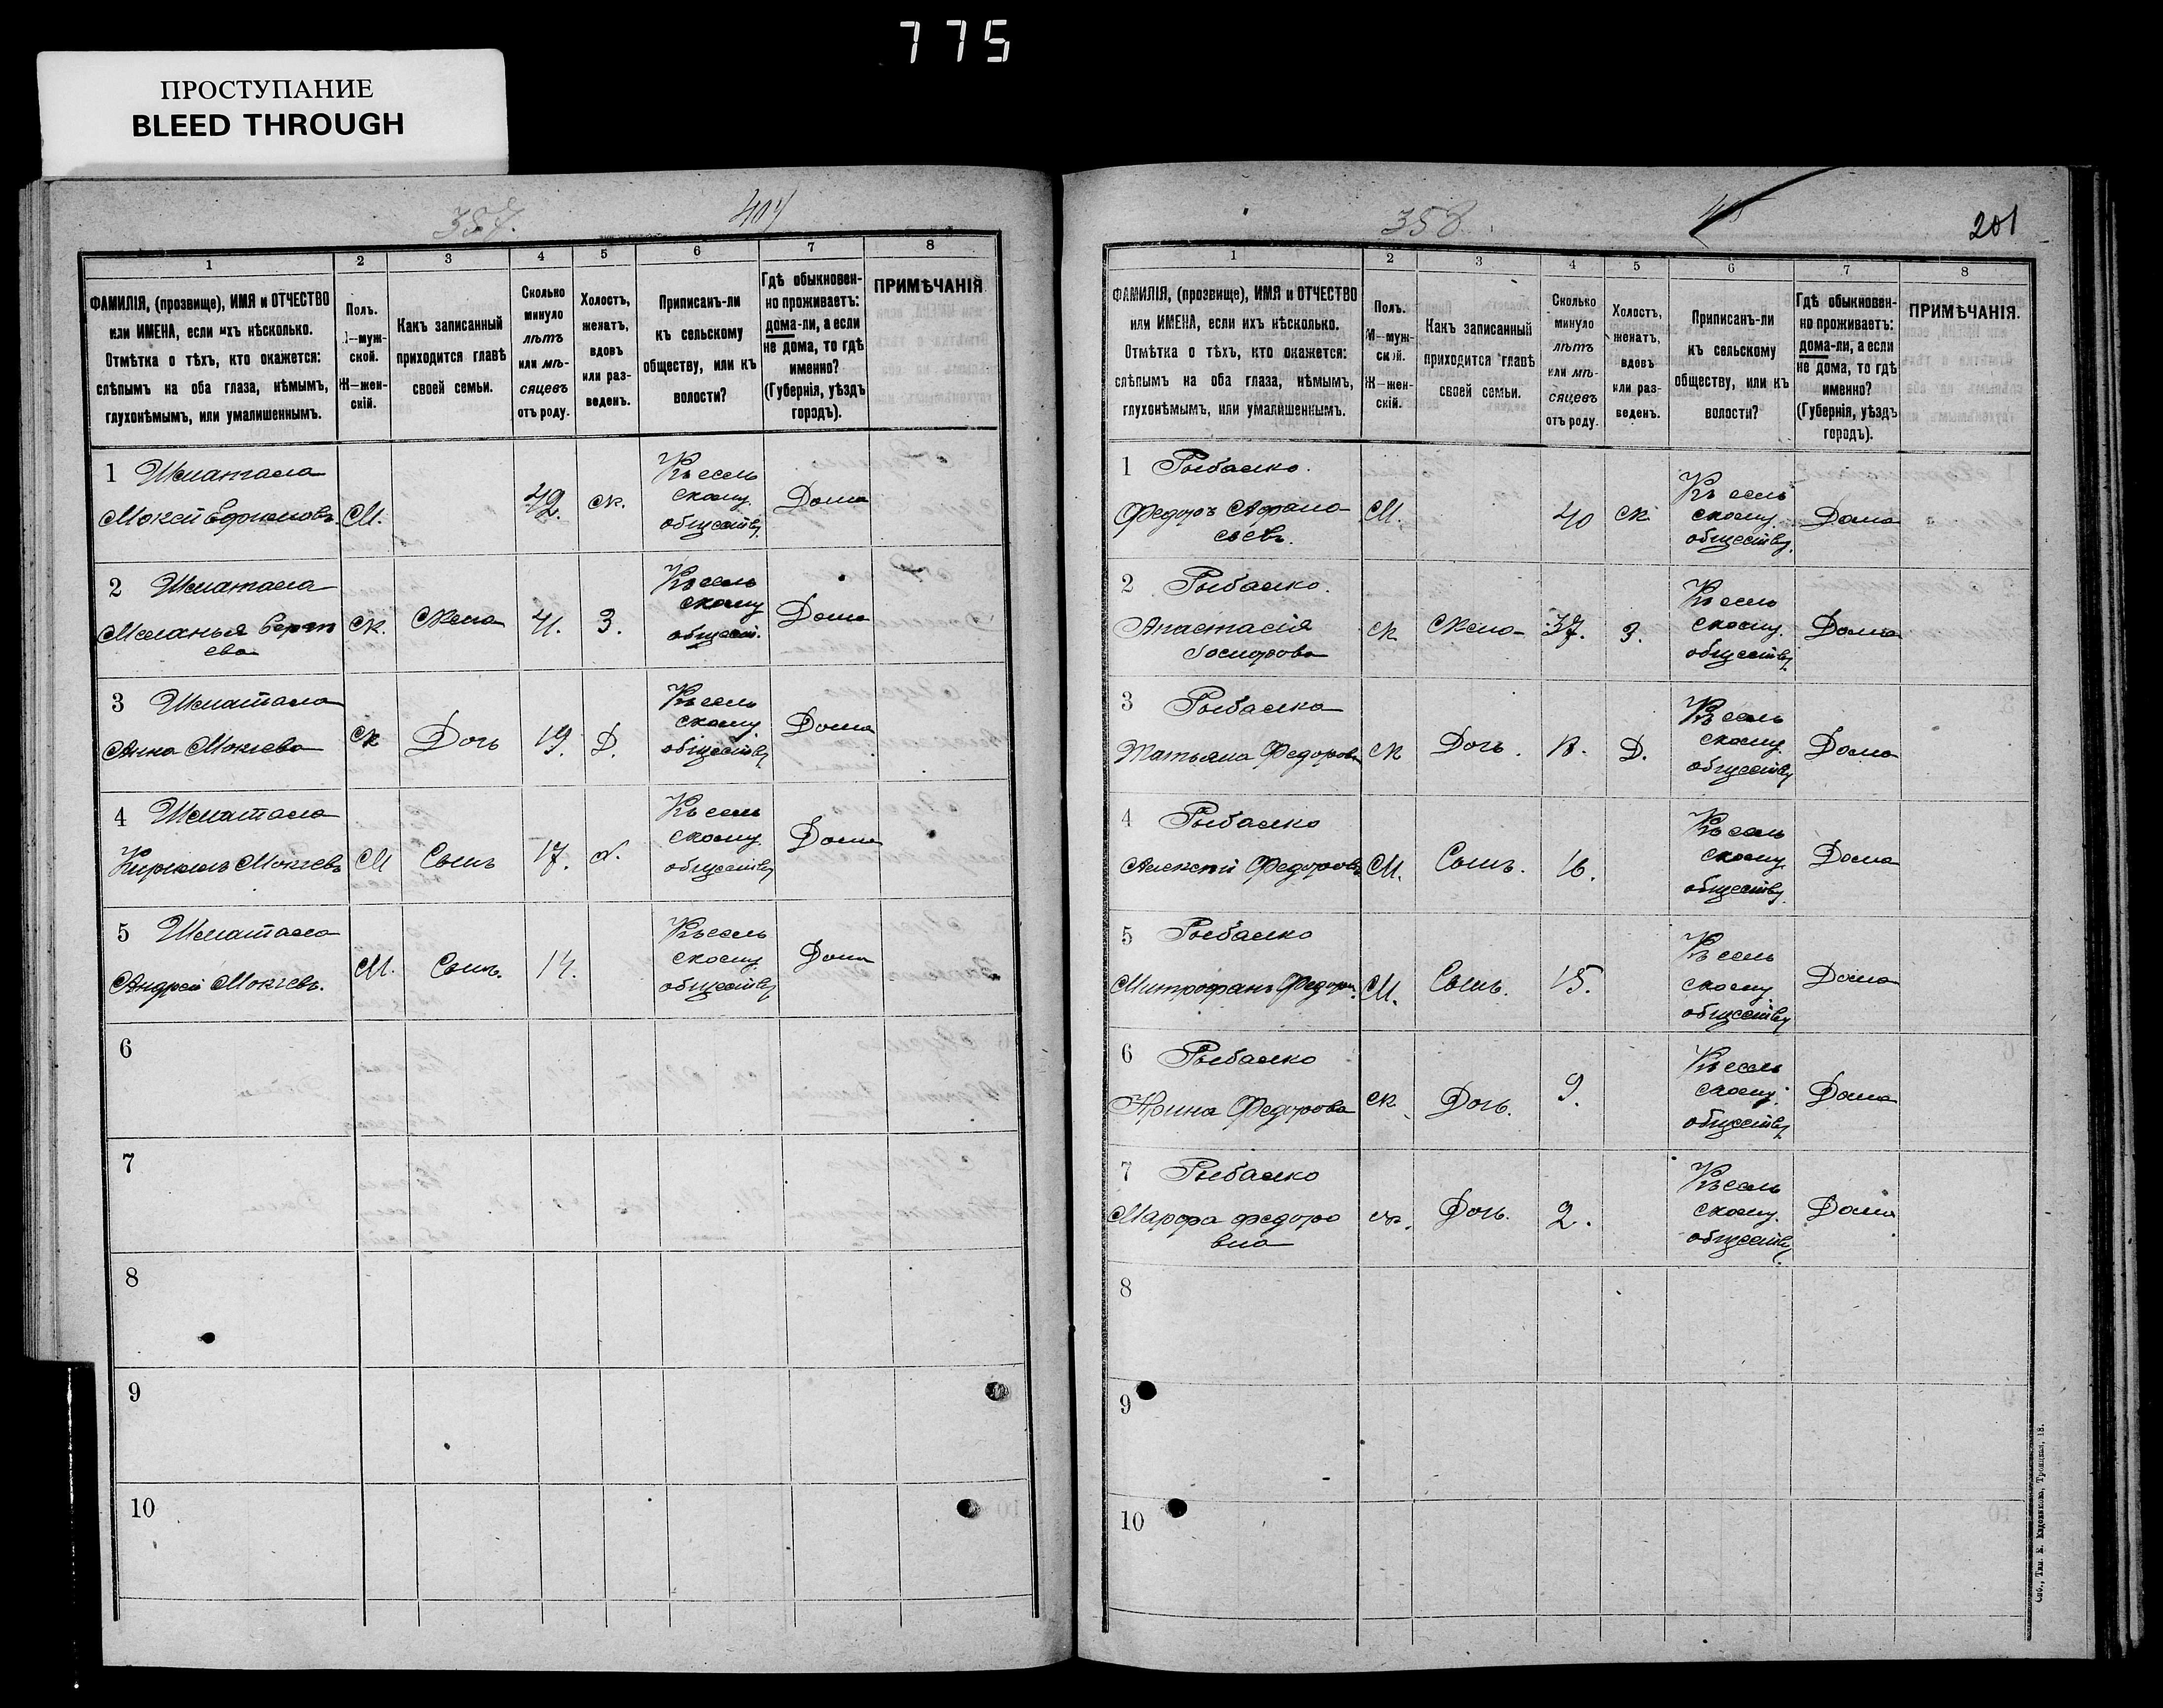 775
ПРОСТУПАНИЕ
BLEED THROUGH
357.
407
1 2 3 4 5 6 7 8
ФАМИЛІЯ, (прозвище), ИМЯ и ОТЧЕСТВО или ИМЕНА, если ихъ нѣсколько. Отмѣтка о тѣхъ, кто окажется: слѣпымъ на оба глаза, нѣмымъ, глухонѣмымъ, или умалишеннымъ.
Полъ. М—мужской. Ж—женскій.
Какъ записанный приходится главѣ своей семьи.
Сколько минуло лѣтъ или мѣсяцевъ отъ роду.
Холостъ, женатъ, вдовъ или разведенъ.
Приписанъ-ли къ сельскому обществу, или къ волости?
Гдѣ обыкновенно проживаетъ: дома-ли, а если не дома, то гдѣ именно? (Губернія, уѣздъ городъ).
ПРИМѢЧАНІЯ
1 Шматала
Мокей Ефимовъ. М. 42. ж. Къ сельскому обществу Дома
2 Шматала
Меланья Сергѣева Ж. Жена 41. З. Къ сельскому общест. Дома
3 Шматала
Анна Мокіева Ж Дочь 19. Д. Къ сельскому обществу Дома
4 Шматала
Кириллъ Мокіевъ М Сынъ 17. х. Къ сельскому обществу Дома
5 Шматала
Андрей Мокіевъ. М. Сынъ. 14. Къ сельскому обществу Дома
6
7
8
9
10
358
201
1 2 3 4 5 6 7 8
ФАМИЛІЯ, (прозвище), ИМЯ и ОТЧЕСТВО или ИМЕНА, если ихъ нѣсколько. Отмѣтка о тѣхъ, кто окажется: слѣпымъ на оба глаза, нѣмымъ, глухонѣмымъ, или умалишеннымъ.
Полъ. М—мужской. Ж—женскій.
Какъ записанный приходится главѣ своей семьи.
Сколько минуло лѣтъ или мѣсяцевъ отъ роду.
Холостъ, женатъ, вдовъ или разведенъ.
Приписанъ-ли къ сельскому обществу, или къ волости?
Гдѣ обыкновенно проживаетъ: дома-ли, а если не дома, то гдѣ именно? (Губернія, уѣздъ городъ).
ПРИМѢЧАНІЯ.
1 Рыбалко.
Федоръ Афанасьевъ. М. 40 Ж Къ сельскому обществу. Дома
2 Рыбалко.
Анастасія Ж Жена 37. З. Къ сельскому обществу. Дома
3 Рыбалко
Татьяна Федорова Ж Дочь. 18. Д. Къ сельскому обществу Дома
4 Рыбалко
Алексѣй Федоровъ М. Сынъ. 16. Къ сельскому обществу Дома
5 Рыбалко
Митрофанъ Федоров. М. Сынъ. 15. Къ сельскому обществу Дома
6 Рыбалко
Ирина Федорова Ж Дочь. 9. Къ сельскому обществу Дома
7 Рыбалко
Марфа федоровна ж. Дочь. 2. Къ сельскому обществу. Дома
8
9
10